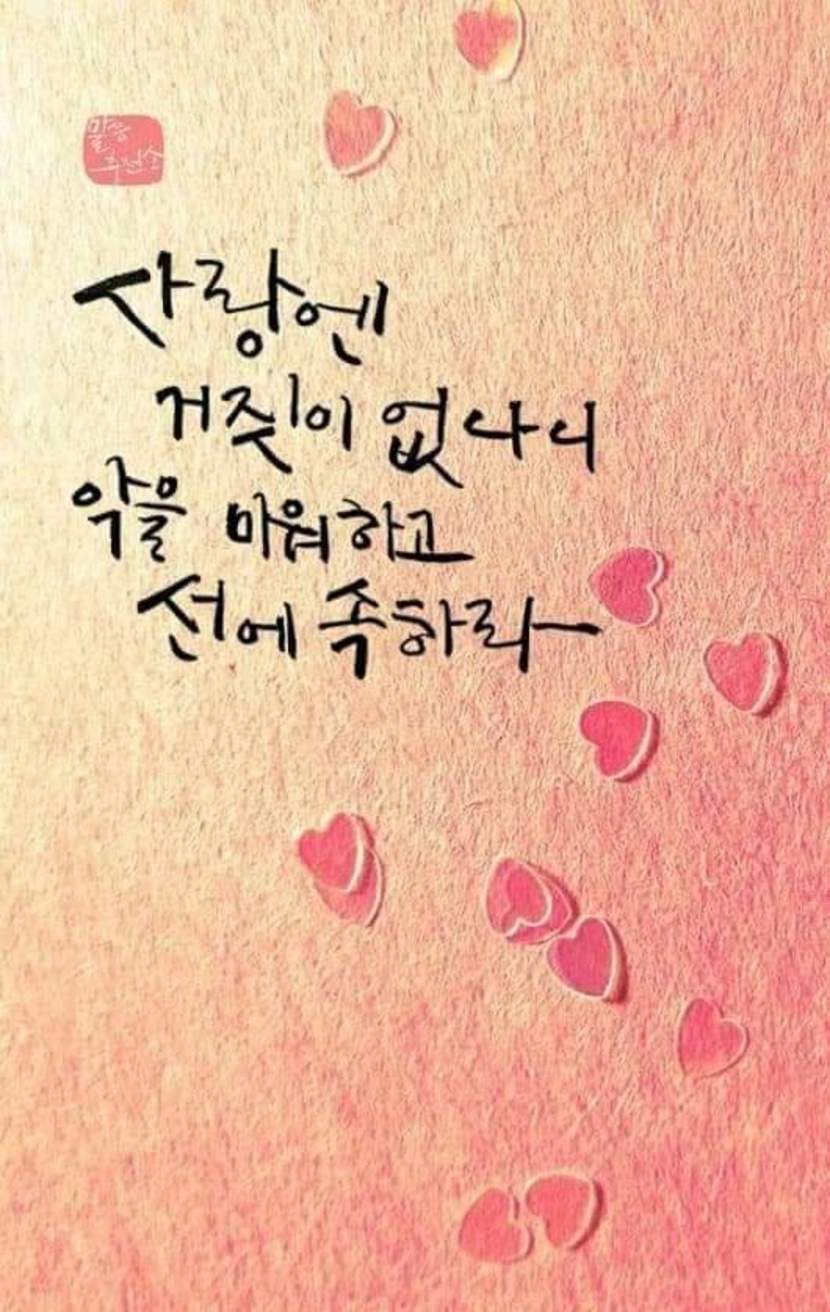 사랑엔
거짓이 없나니
악을 미워하고
선에 속하라